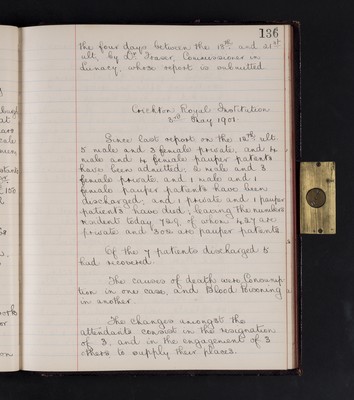 136
the four days between the 18th and 21st
ult, by Dr. Fraser, Commissioner in
Lunacy, whose report is submitted
Crichton Royal Institution
3rd May 1901.
Since last report on the 12th ult.
5 male and 3 female private, and 4
male and 4 female pauper patients
have been admitted; 2 male and 3
female private and 1 male and 1
female pauper patients have been
discharged; and 1 private and 1 pauper
patients have died, leaving the numbers
resident today
private and 308 are pauper patients.
Of the 7 patients discharged 5
had recovered.
The causes of death were Consump-
tion in one case, and Blood Poisoning
in another.
The changes amongst the
attendants consist in the resignation
of 3, and in the engagement of 3
others to supply their places.